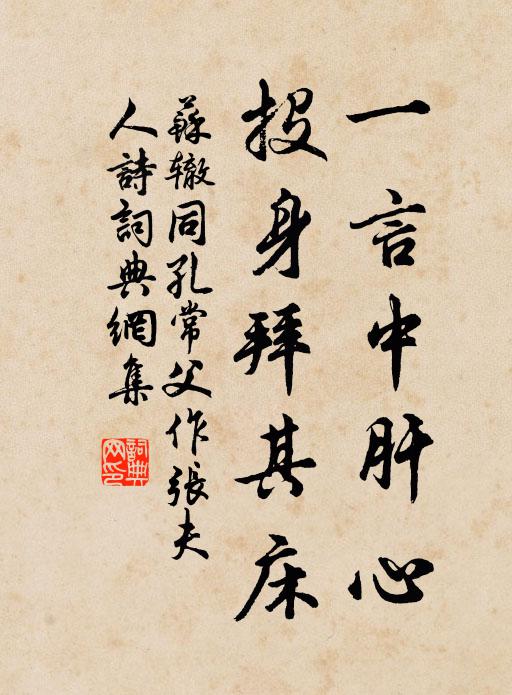 一言中肝心
投身拜其床
蘇辙同孔常父作張夫
人詩詞典網集
詞典網印